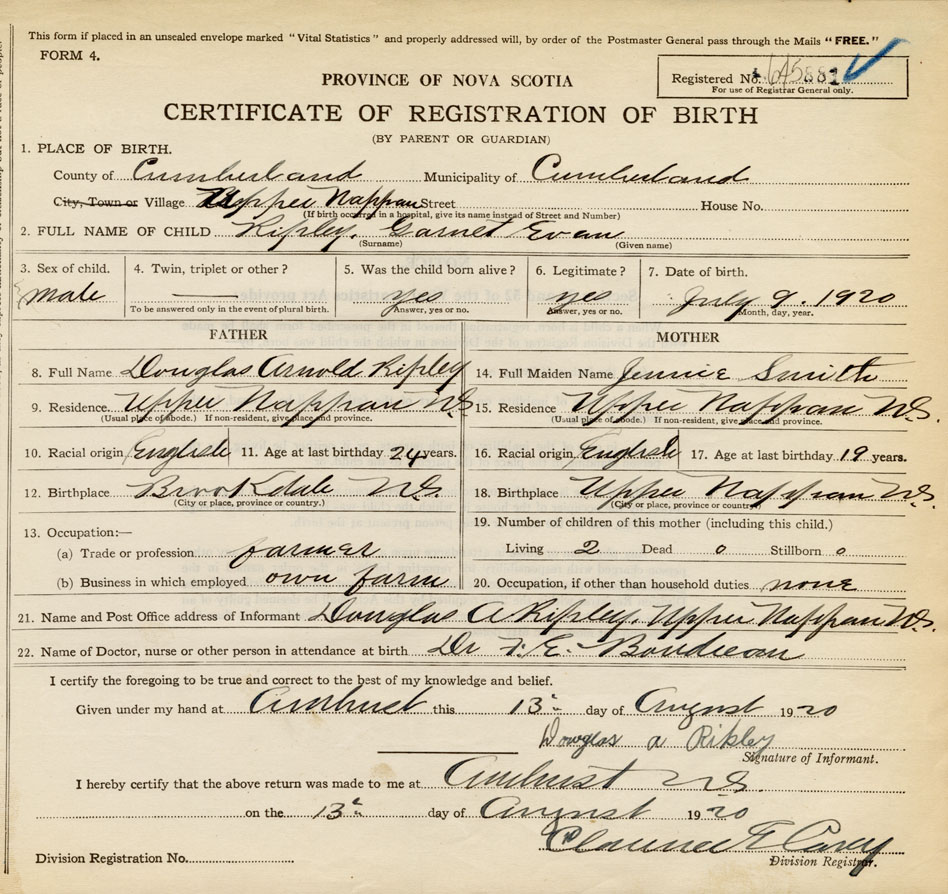 This form if placed in an unsealed envelope marked "Vital Statistics" and properly addressed will, by order of the Postmaster General pass through the Mails "FREE."
FORM 4.
Registered No.
For use of Registrar General only.
PROVINCE OF NOVA SCOTIA
CERTIFICATE OF REGISTRATION OF BIRTH
(BY PARENT OR GUARDIAN)
1. PLACE OF BIRTH.
County of Cumberland Municipality of Cumberland
City, Town or Village Upper Nappan Street House No.
(If birth occurred in a hospital, give its name instead of Street and Number)
2. FULL NAME OF CHILD Ripley. Garnet Evan
(Surname) (Given name)
3. Sex of child. 4. Twin, triplet or other? 5. Was the child born alive? 6. Legitimate? 7. Date of birth.
male — yes yes July 9. 1920
To be answered only in the event of plural birth. Answer, yes or no. Answer, yes or no. Month, day, year.
FATHER MOTHER
8. Full Name Douglas Arnold Ripley 14. Full Maiden Name Jennie Smith
9. Residence Upper Nappan N.S. 15. Residence Upper Nappan N.S.
(Usual place of abode.) If non-resident, give place and province. (Usual place of abode.) If non-resident, give place and province.
10. Racial origin English 11. Age at last birthday 24 years. 16. Racial origin English 17. Age at last birthday 19 years.
12. Birthplace Brookdale N.S. 18. Birthplace Upper Nappan N.S.
(City or place, province or country.) (City or place, province or country)
13. Occupation:— 19. Number of children of this mother (including this child.)
(a) Trade or profession farmer Living 2 Dead 0 Stillborn 0
(b) Business in which employed own farm 20. Occupation, if other than household duties none
21. Name and Post Office address of Informant Douglas A Ripley. Upper Nappan N.S.
22. Name of Doctor, nurse or other person in attendance at birth Dr F. E. Boudreau
I certify the foregoing to be true and correct to the best of my knowledge and belief.
Given under my hand at Amherst this 13th day of August 1920
Douglas a Ripley
Signature of Informant.
I hereby certify that the above return was made to me at Amherst N.S.
on the 13th day of August 1920
Clarence E Casey
Division Registration No. Division Registrar.